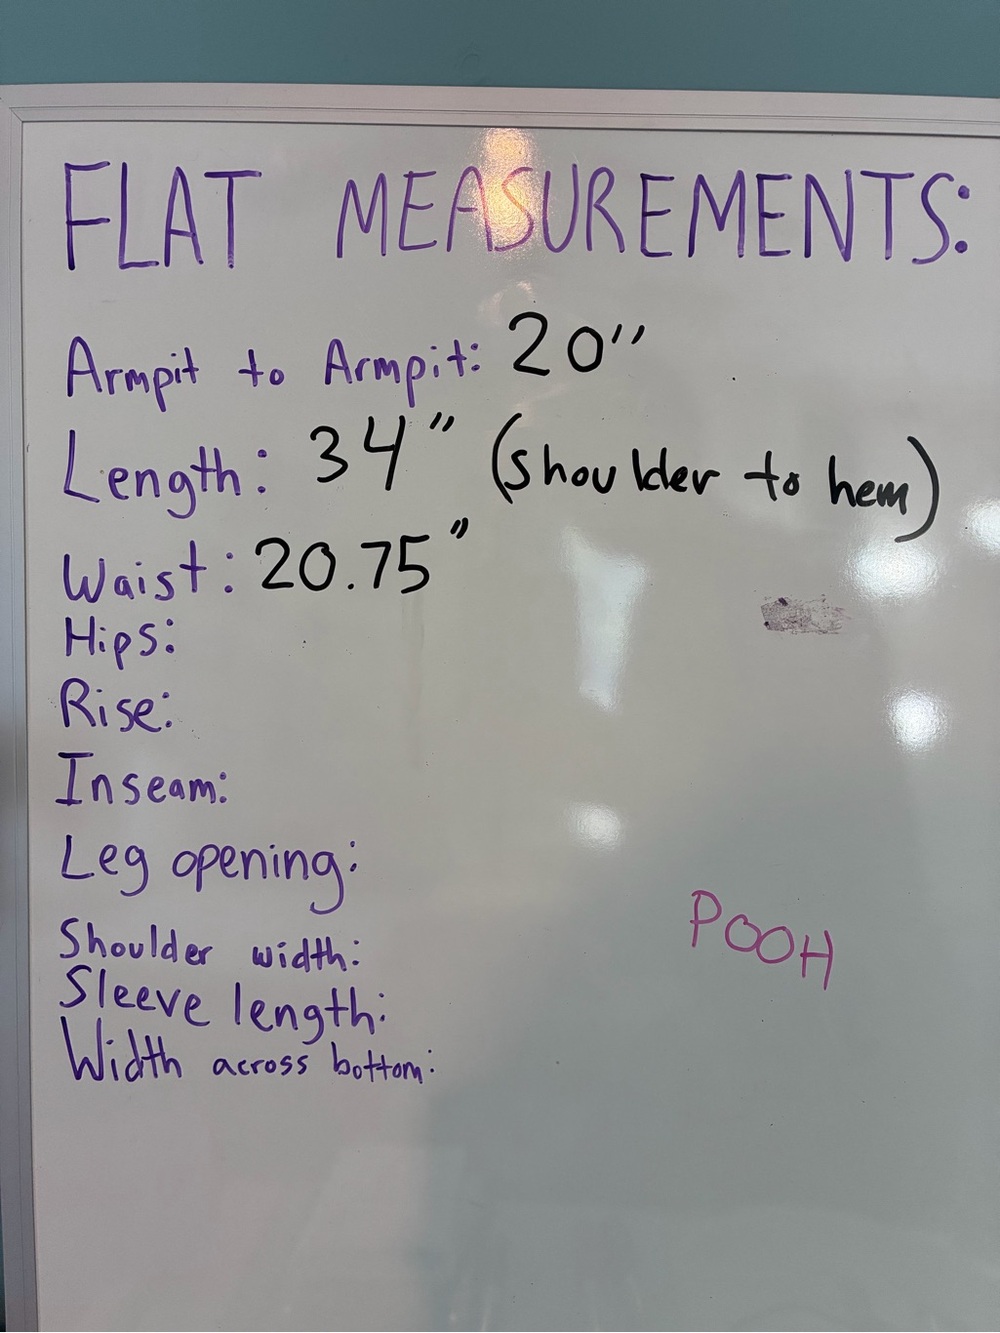 FLAT MEASUREMENTS:
Armpit to Armpit: 20"
Length: 34" (shoulder to hem)
Waist: 20.75"
Hips:
Rise:
Inseam:
Leg opening:
POOH
Shoulder width:
Sleeve length:
Width across bottom: